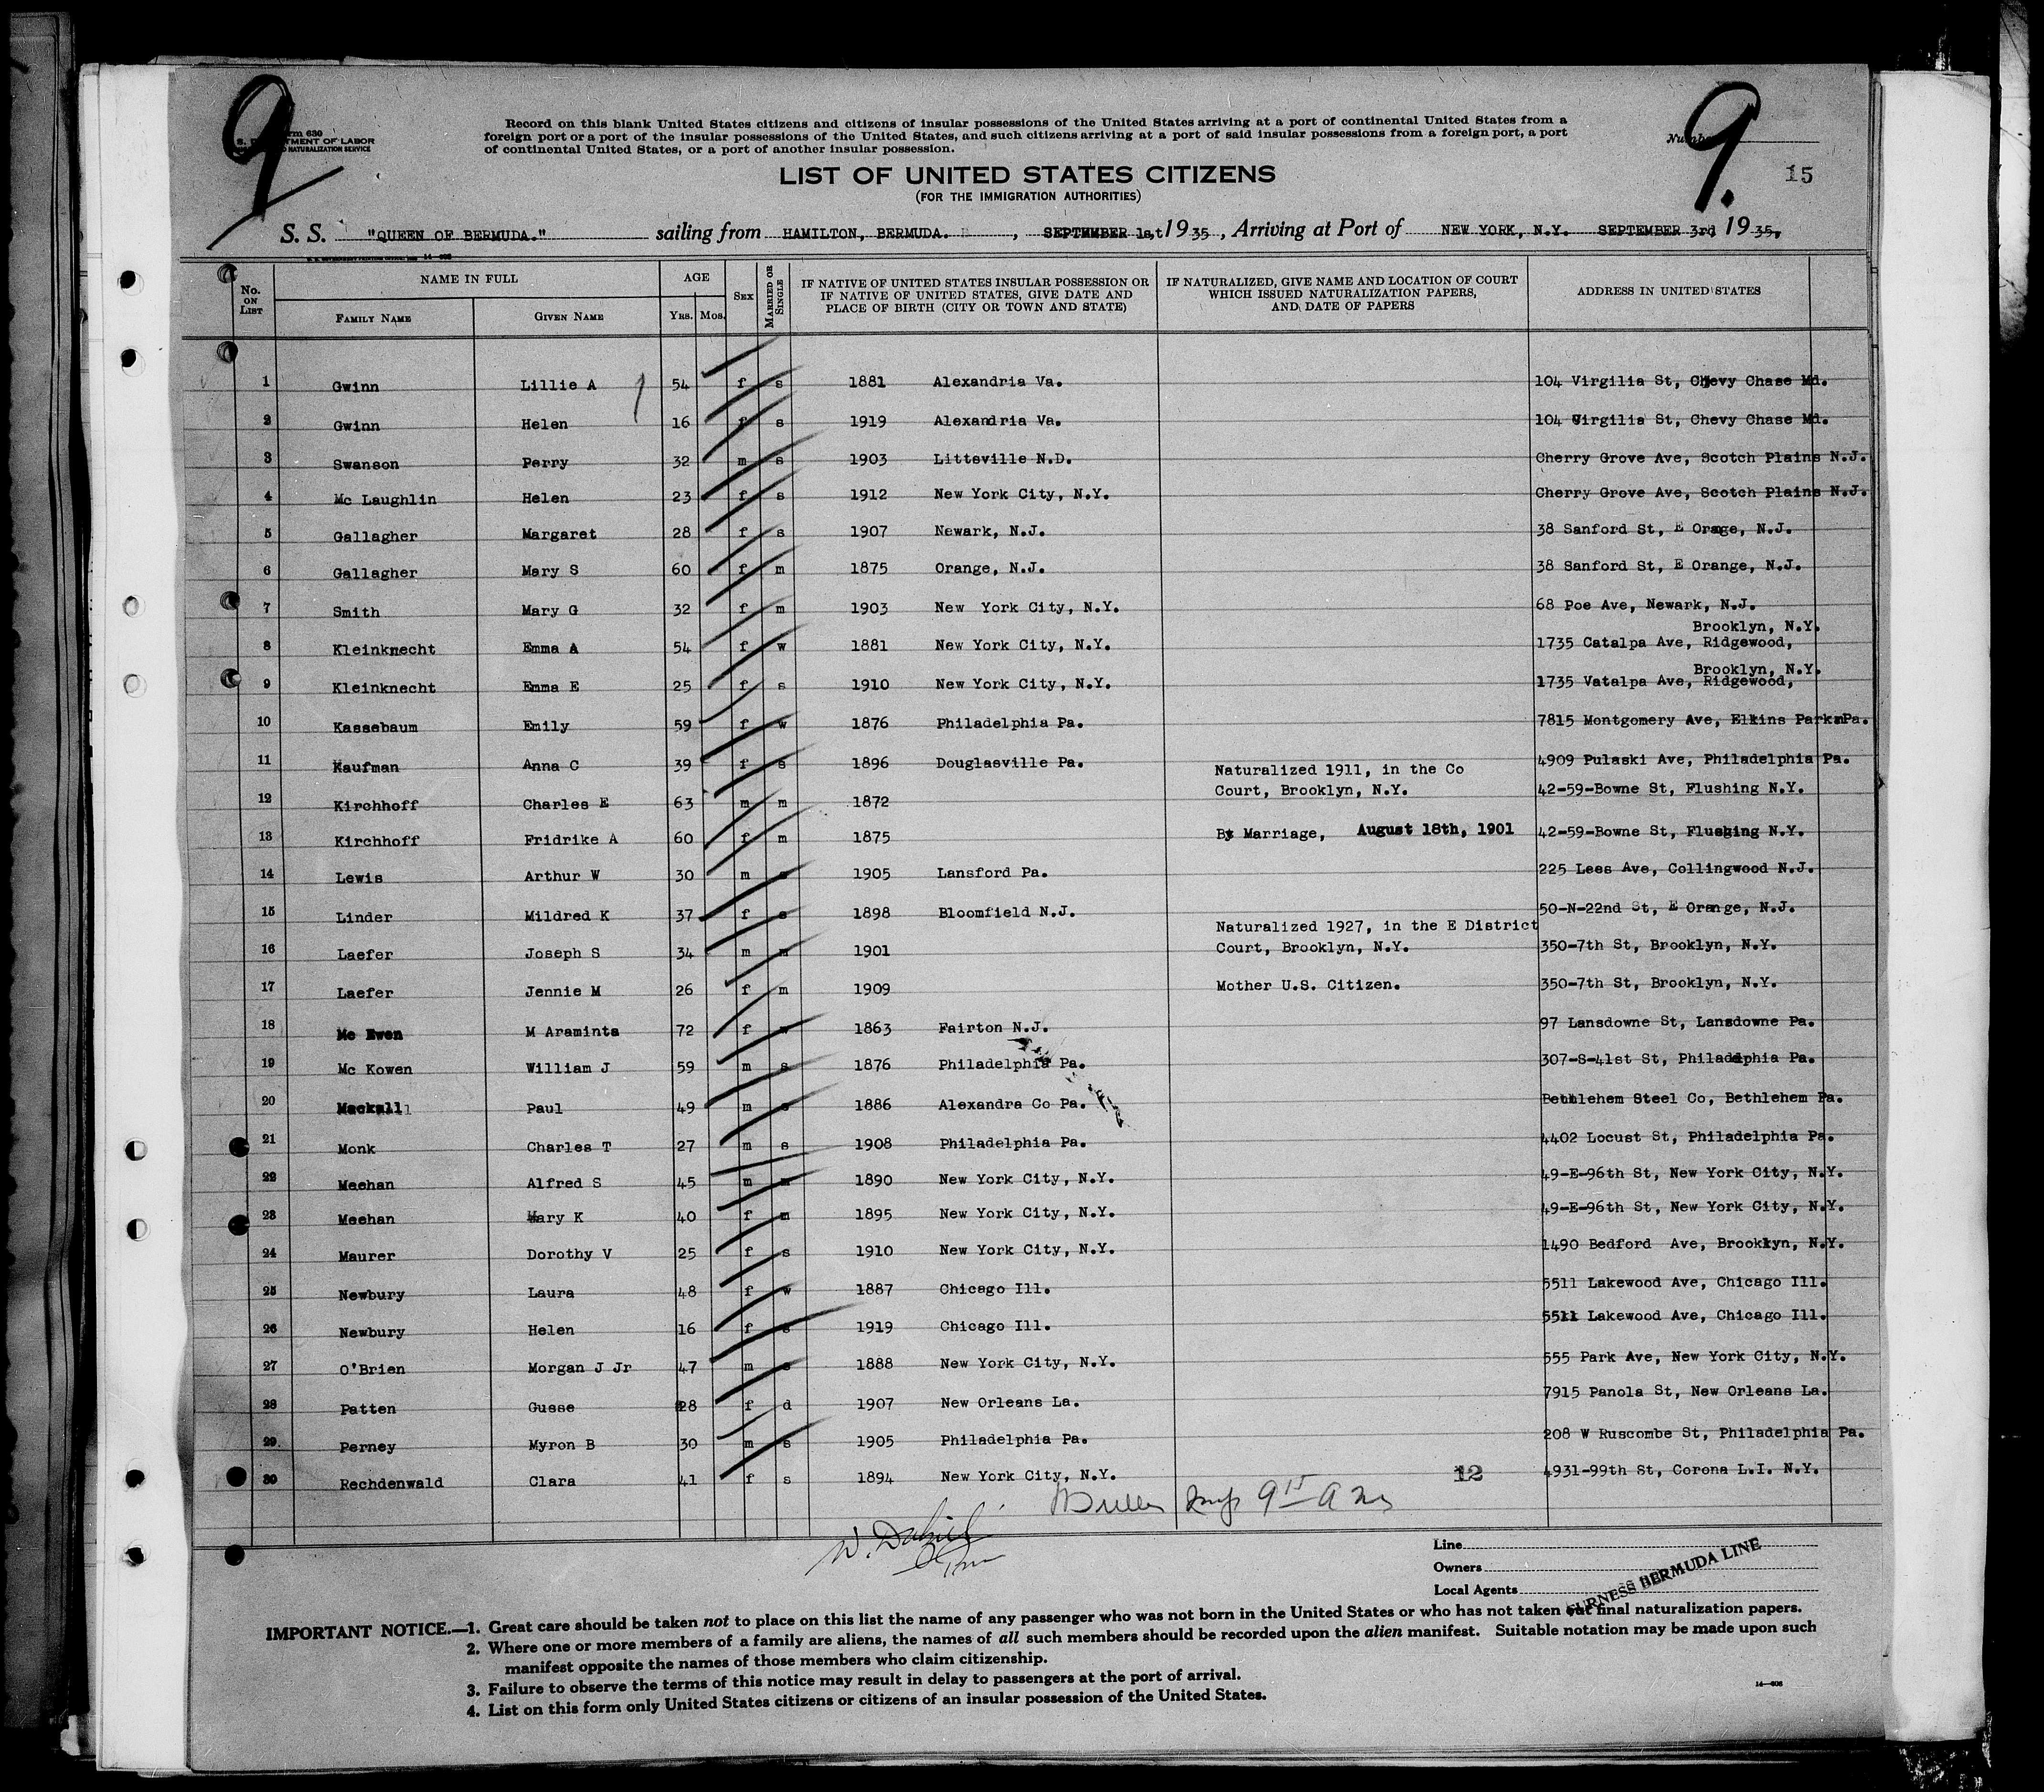 9
9.
Form 630
U. S. DEPARTMENT OF LABOR
NATURALIZATION SERVICE
Record on this blank United States citizens and citizens of insular possessions of the United States arriving at a port of continental United States from a
foreign port or a port of the insular possessions of the United States, and such citizens arriving at a port of said insular possessions from a foreign port, a port
of continental United States, or a port of another insular possession.
Number
15
LIST OF UNITED STATES CITIZENS
(FOR THE IMMIGRATION AUTHORITIES)
S. S. "QUEEN OF BERMUDA." sailing from HAMILTON, BERMUDA. , SEPTEMBER 1st, 1935, Arriving at Port of NEW YORK, N.Y. SEPTEMBER 3rd, 1935.
No. ON LIST
NAME IN FULL
FAMILY NAME
GIVEN NAME
AGE
YRS. MOS.
SEX
MARRIED OR SINGLE
IF NATIVE OF UNITED STATES INSULAR POSSESSION OR
IF NATIVE OF UNITED STATES, GIVE DATE AND
PLACE OF BIRTH (CITY OR TOWN AND STATE)
IF NATURALIZED, GIVE NAME AND LOCATION OF COURT
WHICH ISSUED NATURALIZATION PAPERS,
AND DATE OF PAPERS
ADDRESS IN UNITED STATES
1 Gwinn Lillie A 54 f s 1881 Alexandria Va. 104 Virgilia St, Chevy Chase Md.
2 Gwinn Helen 16 f s 1919 Alexandria Va. 104 Virgilia St, Chevy Chase Md.
3 Swanson Perry 32 m s 1903 Littsville N.D. Cherry Grove Ave, Scotch Plains N.J.
4 Mc Laughlin Helen 23 f s 1912 New York City, N.Y. Cherry Grove Ave, Scotch Plains N.J.
5 Gallagher Margaret 28 f s 1907 Newark, N.J. 38 Sanford St, E Orange, N.J.
6 Gallagher Mary S 60 f m 1875 Orange, N.J. 38 Sanford St, E Orange, N.J.
7 Smith Mary G 32 f m 1903 New York City, N.Y. 68 Poe Ave, Newark, N.J.
Brooklyn, N.Y.
8 Kleinknecht Emma A 54 f w 1881 New York City, N.Y. 1735 Catalpa Ave, Ridgewood,
Brooklyn, N.Y.
9 Kleinknecht Emma E 25 f s 1910 New York City, N.Y. 1735 Vatalpa Ave, Ridgewood,
10 Kassebaum Emily 59 f w 1876 Philadelphia Pa. 7815 Montgomery Ave, Elkins Park Pa.
11 Kaufman Anna C 39 f s 1896 Douglasville Pa. 4909 Pulaski Ave, Philadelphia Pa.
Naturalized 1911, in the Co
12 Kirchhoff Charles E 63 m m 1872 Court, Brooklyn, N.Y. 42-59-Bowne St, Flushing N.Y.
13 Kirchhoff Fridrike A 60 f m 1875 By Marriage, August 18th, 1901 42-59-Bowne St, Flushing N.Y.
14 Lewis Arthur W 30 m s 1905 Lansford Pa. 225 Lees Ave, Collingwood N.J.
15 Linder Mildred K 37 f s 1898 Bloomfield N.J. 50-N-22nd St, E Orange, N.J.
Naturalized 1927, in the E District
16 Laefer Joseph S 34 m m 1901 Court, Brooklyn, N.Y. 350-7th St, Brooklyn, N.Y.
17 Laefer Jennie M 26 f m 1909 Mother U.S. Citizen. 350-7th St, Brooklyn, N.Y.
18 Mc Ewen M Araminta 72 f w 1863 Fairton N.J. 97 Lansdowne St, Lansdowne Pa.
19 Mc Kowen William J 59 m s 1876 Philadelphia Pa. 307-S-41st St, Philadelphia Pa.
20 Mackall Paul 49 m s 1886 Alexandra Co Pa. Bethlehem Steel Co, Bethlehem Pa.
21 Monk Charles T 27 m s 1908 Philadelphia Pa. 4402 Locust St, Philadelphia Pa.
22 Meehan Alfred S 45 m m 1890 New York City, N.Y. 49-E-96th St, New York City, N.Y.
23 Meehan Mary K 40 f m 1895 New York City, N.Y. 49-E-96th St, New York City, N.Y.
24 Maurer Dorothy V 25 f s 1910 New York City, N.Y. 1490 Bedford Ave, Brooklyn, N.Y.
25 Newbury Laura 48 f w 1887 Chicago Ill. 5511 Lakewood Ave, Chicago Ill.
26 Newbury Helen 16 f s 1919 Chicago Ill. 5511 Lakewood Ave, Chicago Ill.
27 O'Brien Morgan J Jr 47 m s 1888 New York City, N.Y. 555 Park Ave, New York City, N.Y.
28 Patten Gusse 28 f d 1907 New Orleans La. 7915 Panola St, New Orleans La.
29 Perney Myron B 30 m s 1905 Philadelphia Pa. 208 W Ruscombe St, Philadelphia Pa.
30 Rechdenwald Clara 41 f s 1894 New York City, N.Y. 12 4931-99th St, Corona L.I. N.Y.
Line
Owners
Local Agents
FURNESS BERMUDA LINE
IMPORTANT NOTICE.—1. Great care should be taken not to place on this list the name of any passenger who was not born in the United States or who has not taken out final naturalization papers.
2. Where one or more members of a family are aliens, the names of all such members should be recorded upon the alien manifest. Suitable notation may be made upon such
manifest opposite the names of those members who claim citizenship.
3. Failure to observe the terms of this notice may result in delay to passengers at the port of arrival.
4. List on this form only United States citizens or citizens of an insular possession of the United States.